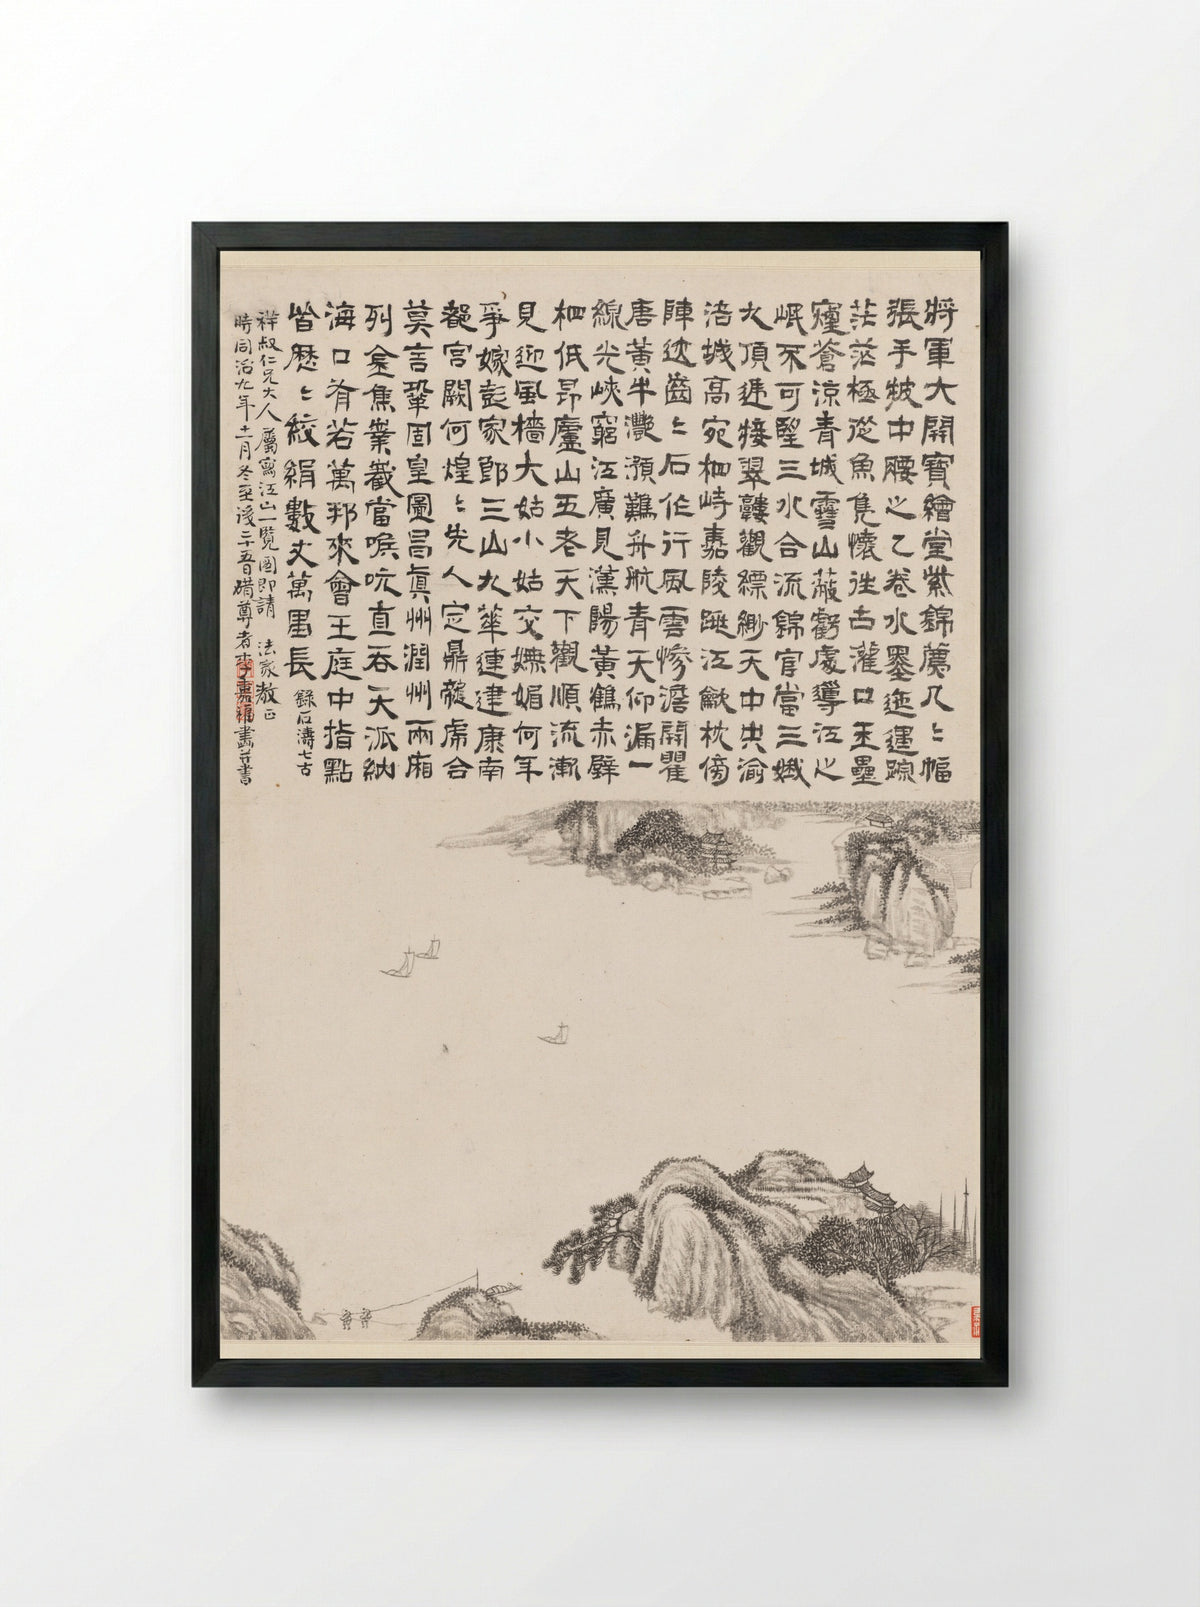 將軍大開寶繪堂紫錦薦几〻幅
張手皴中腰之乙卷水墨迤邐踪
茫茫極從魚鳧懷往古灌口玉壘
瘞蒼涼青城雪山蔽虧處導江之
岷不可望三水合流錦官當三峨
大頂遞接翠鬟觀縹緲天中央渝
涪城高宛相峙嘉陵跳江歙枕傍
陣迹齒〻石作行風雲慘澹開瞿
唐黃牛灩澦難舟航青天仰漏一
線光峽窮江廣見漢陽黃鶴赤壁
相低昂廬山五老天下觀順流漸
見迎風檣大姑小姑交嫵媚何年
爭嫁彭家郎三山九華連建康南
都宮闕何煌〻先人定鼎龍虎合
莫言鞏固皇圖昌真州潤州兩廂
列金焦業嶻當喉吭直吞天派納
海口有若萬邦來會王庭中指點
皆歷〻絞絹數丈萬里長 錄石濤七古
祥叔仁兄大人屬寫江山一覽圖即請 法家教正
時同治九年十一月冬至後尊者李嘉福畫并書